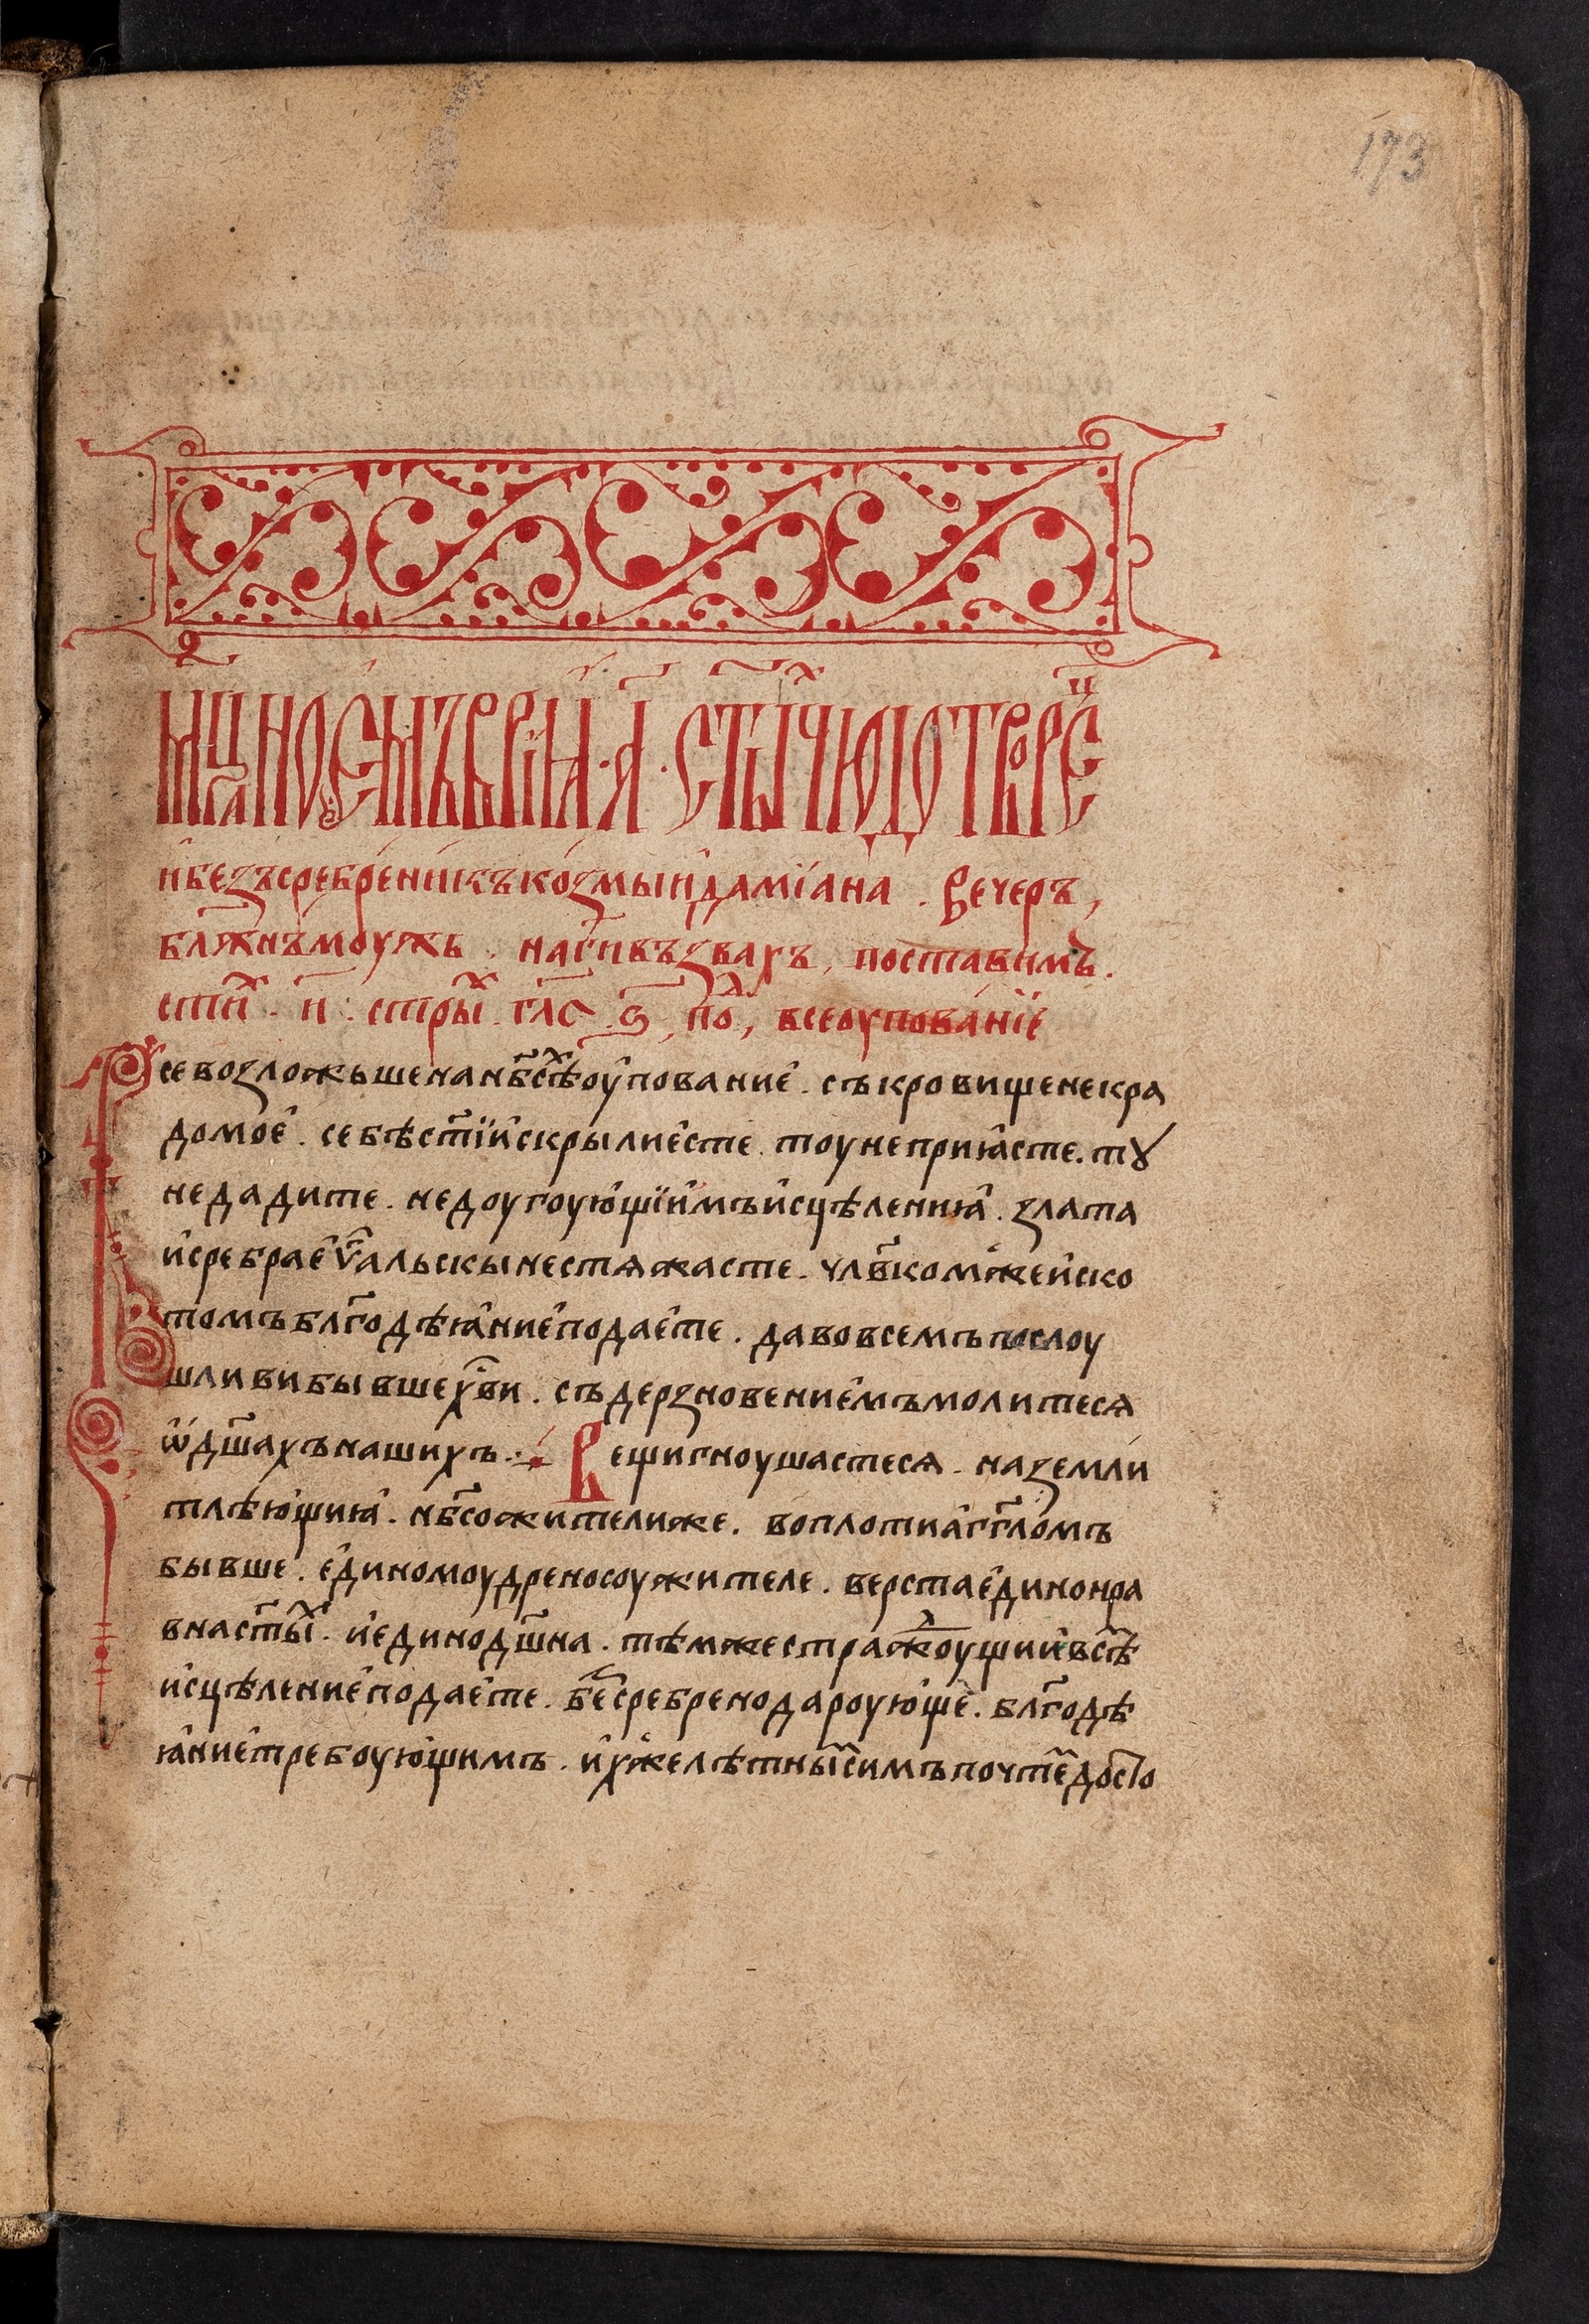 173
мц҃а ноемъврїа . а҃ . ст҃ы̑х чюдотворец
и҆безъсребреникъ ко́змы и҆дамїана . Вечеръ ,
бл҃жнъ моужь . на гс҃и възвахъ , поставимъ .
стих . и҃ . стры̑х . глас . ѕ҃ , под , все оупованїе
Все возложьше на нб҃сѣх оу҆пование҆ . съкровище некра
домое҆ . себѣ ст҃їи и҆скрыли е҆сте . тоуне прия҆сте . тꙋ
не дадите . недоугоую҆щїи҆мъ и҆сцѣления҆ . злата
и҆сребра е҆ѵ҃альскы не стяжасте . чл҃вкомже и҆ ско
томъ бл҃годѣя҆ние҆ подае҆те . да во всемъ послоу
шливи бывше хв҃и . съ дерзновение҆мъ молитеся
ѡ҆ дш҃ахъ нашихъ . Вещи гноушастеся . на земли
тлѣю҆щия҆ . нб҃со жителиже . во плоти а҆гг҃ломъ
бывше . е҆диномоудрено соужителе . верста е҆динонра
вна ст҃ы̑х . и҆ единодш҃на . тѣмже стражⷣоущии҆ всѣм
и҆сцѣление҆ подае҆те . бе҃сребрено дароую҆ще . бл҃годѣ
я҆ние҆ требоую҆щимъ . и҆хже лѣтныи҆ симъ почтем досто